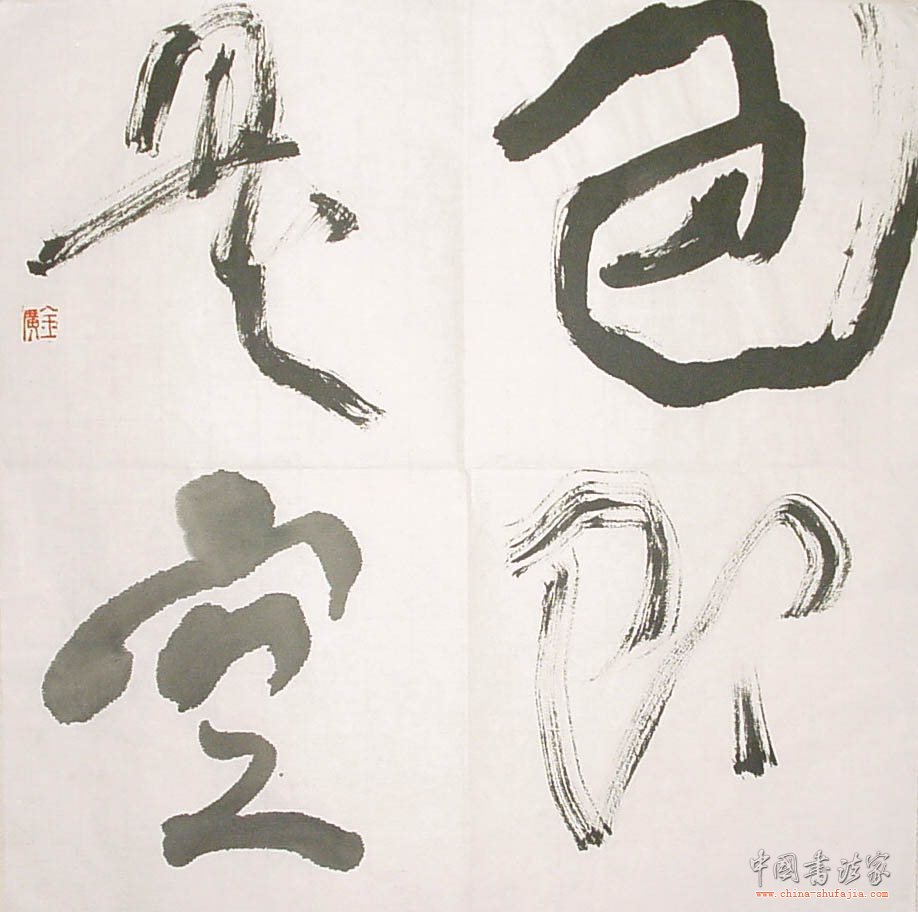 色即
是空
金廣
中国书法家
www.china-shufajia.com